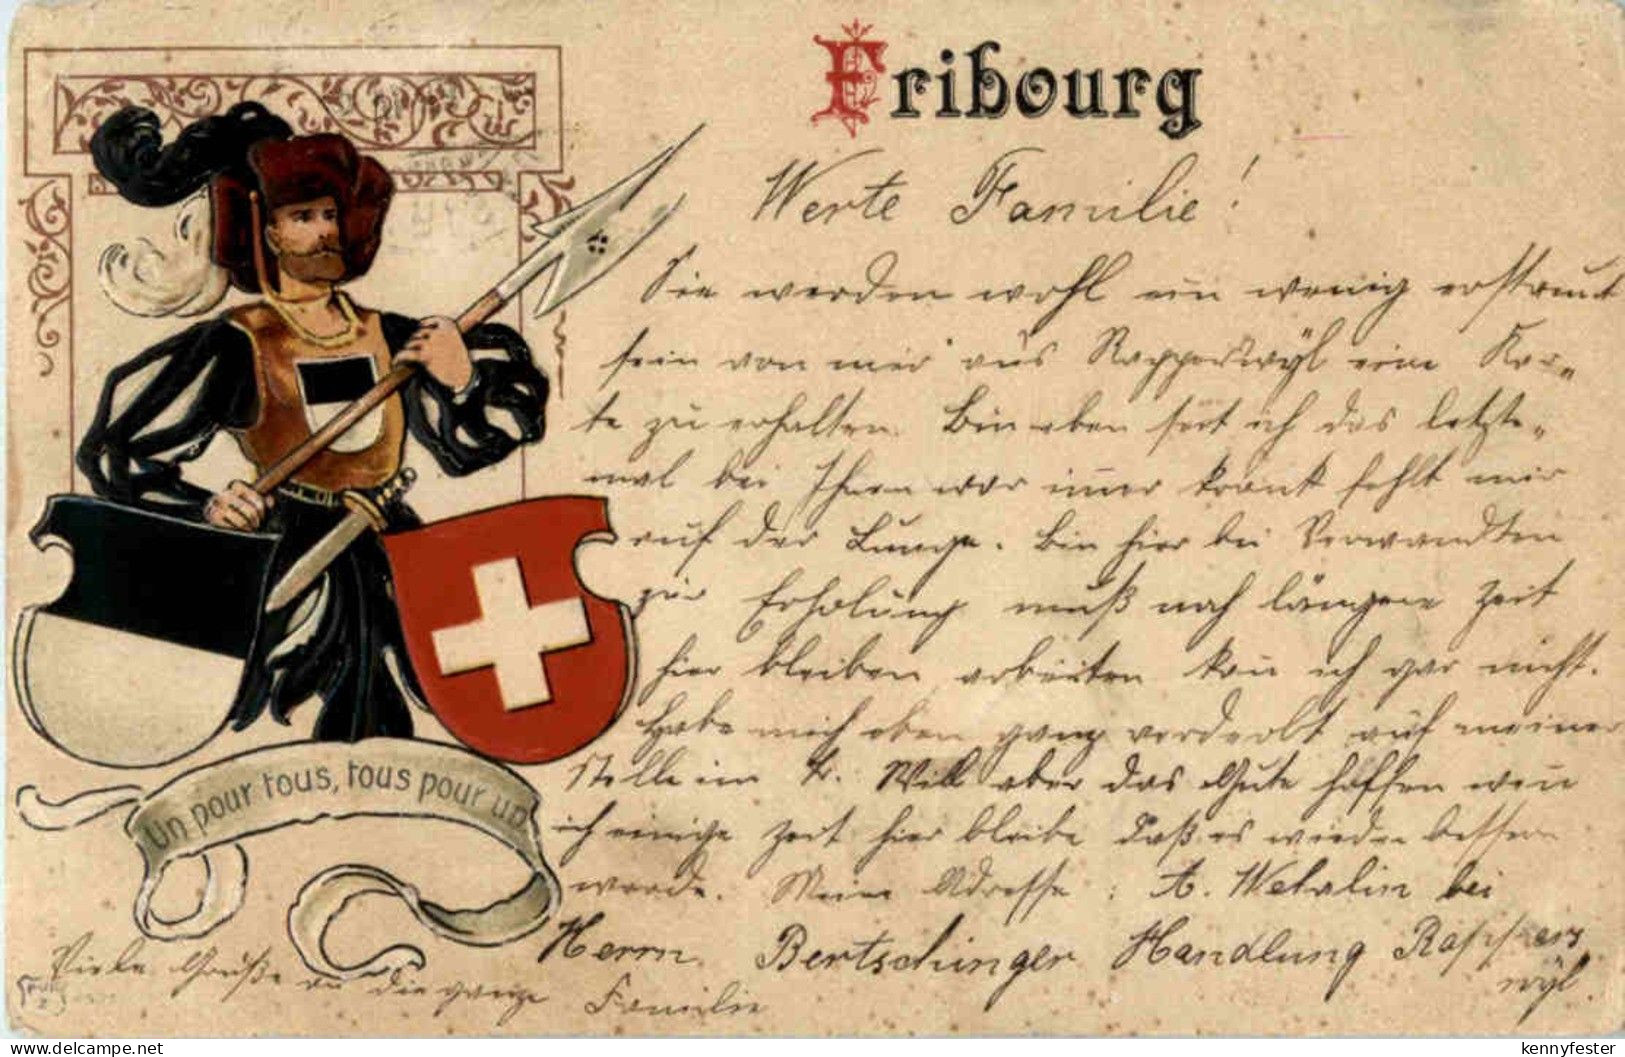 Fribourg
Werte Familie!
Sie werden wohl ein wenig erstaunt
sein von mir aus Rapperswyl eine Kar„
te zu erhalten. Bin eben seit ich das letzte„
mal bei Ihnen war im̅er krank fehlt mir
auf der Lunge. Bin hier bei Verwandten
zur Erholung muß noch längere Zeit
hier bleiben, arbeiten kan̅ ich gar nicht.
Habe mich eben ganz verderbt auf meiner
Stelle im Will aber das Gute hoffen wen̅
ich einige Zeit hier bleibe daß es wieder besser
werde. Meine Adresse: A. bei
Herrn Bertschinger Handlung Rappers
wyl.
Viele Grüße an die ganze Familie
Un pour tous, tous pour un
kennyfester